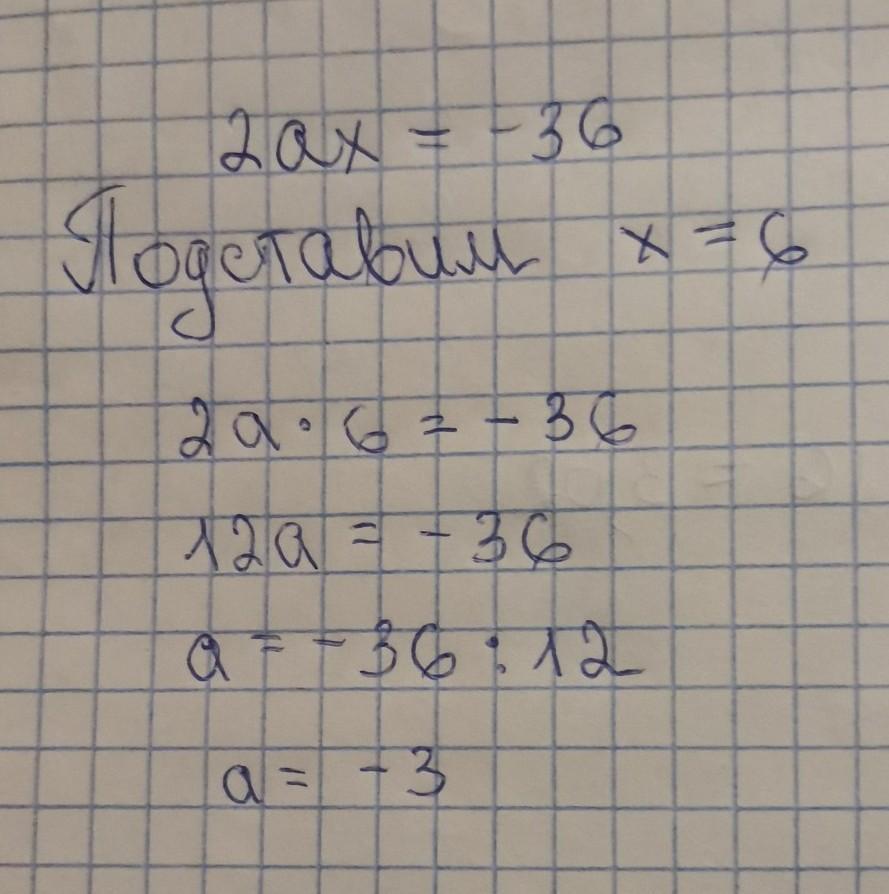 2ax = -36
Подставим x = 6
2a · 6 = - 36
12a = - 36
a = - 36 : 12
a = - 3